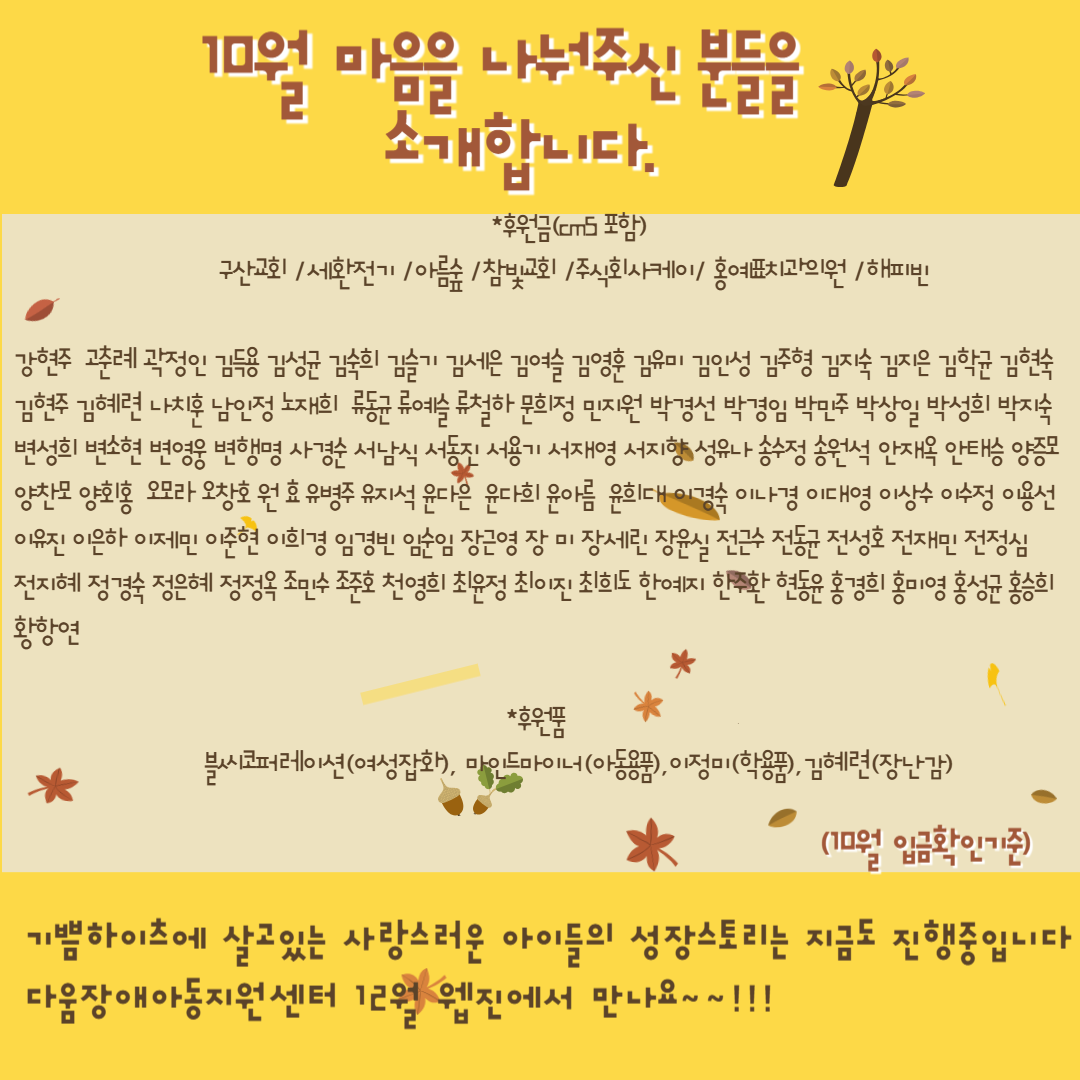 10월 마음을 나눠주신 분들을
소개합니다.
*후원금(cms 포함)
구산교회 /세환전기 /아름숲 /참빛교회 /주식회사케이/ 홍여표치과의원 /해피빈
강현주 고춘례 곽정인 김득용 김성균 김숙희 김슬기 김세은 김여슬 김영훈 김유미 김인성 김주형 김지숙 김지은 김학균 김현숙
김현주 김혜련 나치훈 남인정 노재희 류동균 류예슬 류철하 문희정 민지원 박경선 박경임 박민주 박상일 박성희 박지숙
변성희 변소현 변영웅 변행명 사경순 서남식 서동진 서용기 서재영 서지향 성유나 송수정 송원석 안재옥 안태승 양증모
양찬모 양회홍 오모라 오창호 원 효 유병주 유지석 윤다은 윤다희 윤아름 윤희대 이경숙 이나경 이대영 이상수 이수정 이용선
이유진 이은하 이제민 이준현 이희경 임경빈 임순임 장근영 장 미 장세린 장윤실 전근수 전동균 전성호 전재민 전정심
전지혜 정경숙 정은혜 정정옥 조민수 조준호 천영희 최윤정 최이진 최희도 한예지 한주환 현동윤 홍경희 홍미영 홍성균 홍승희
황항연
*후원품
블씨코퍼레이션(여성잡화), 마인드마이너(아동용품),이정미(학용품),김혜련(장난감)
(10월 입금확인기준)
기쁨하이츠에 살고있는 사랑스러운 아이들의 성장스토리는 지금도 진행중입니다
다움장애아동지원센터 12월 웹진에서 만나요~~!!!